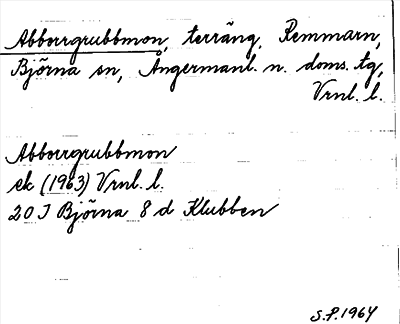 Abborrgrubbmon, terräng, Remmarn,
Björna sn, Ångermanl. n. doms. tg,
Vrnl. l.
Abborrgrubbmon
ek (1963) Vrnl. l.
20 J Björna 8 d Klubben
S.P. 1964